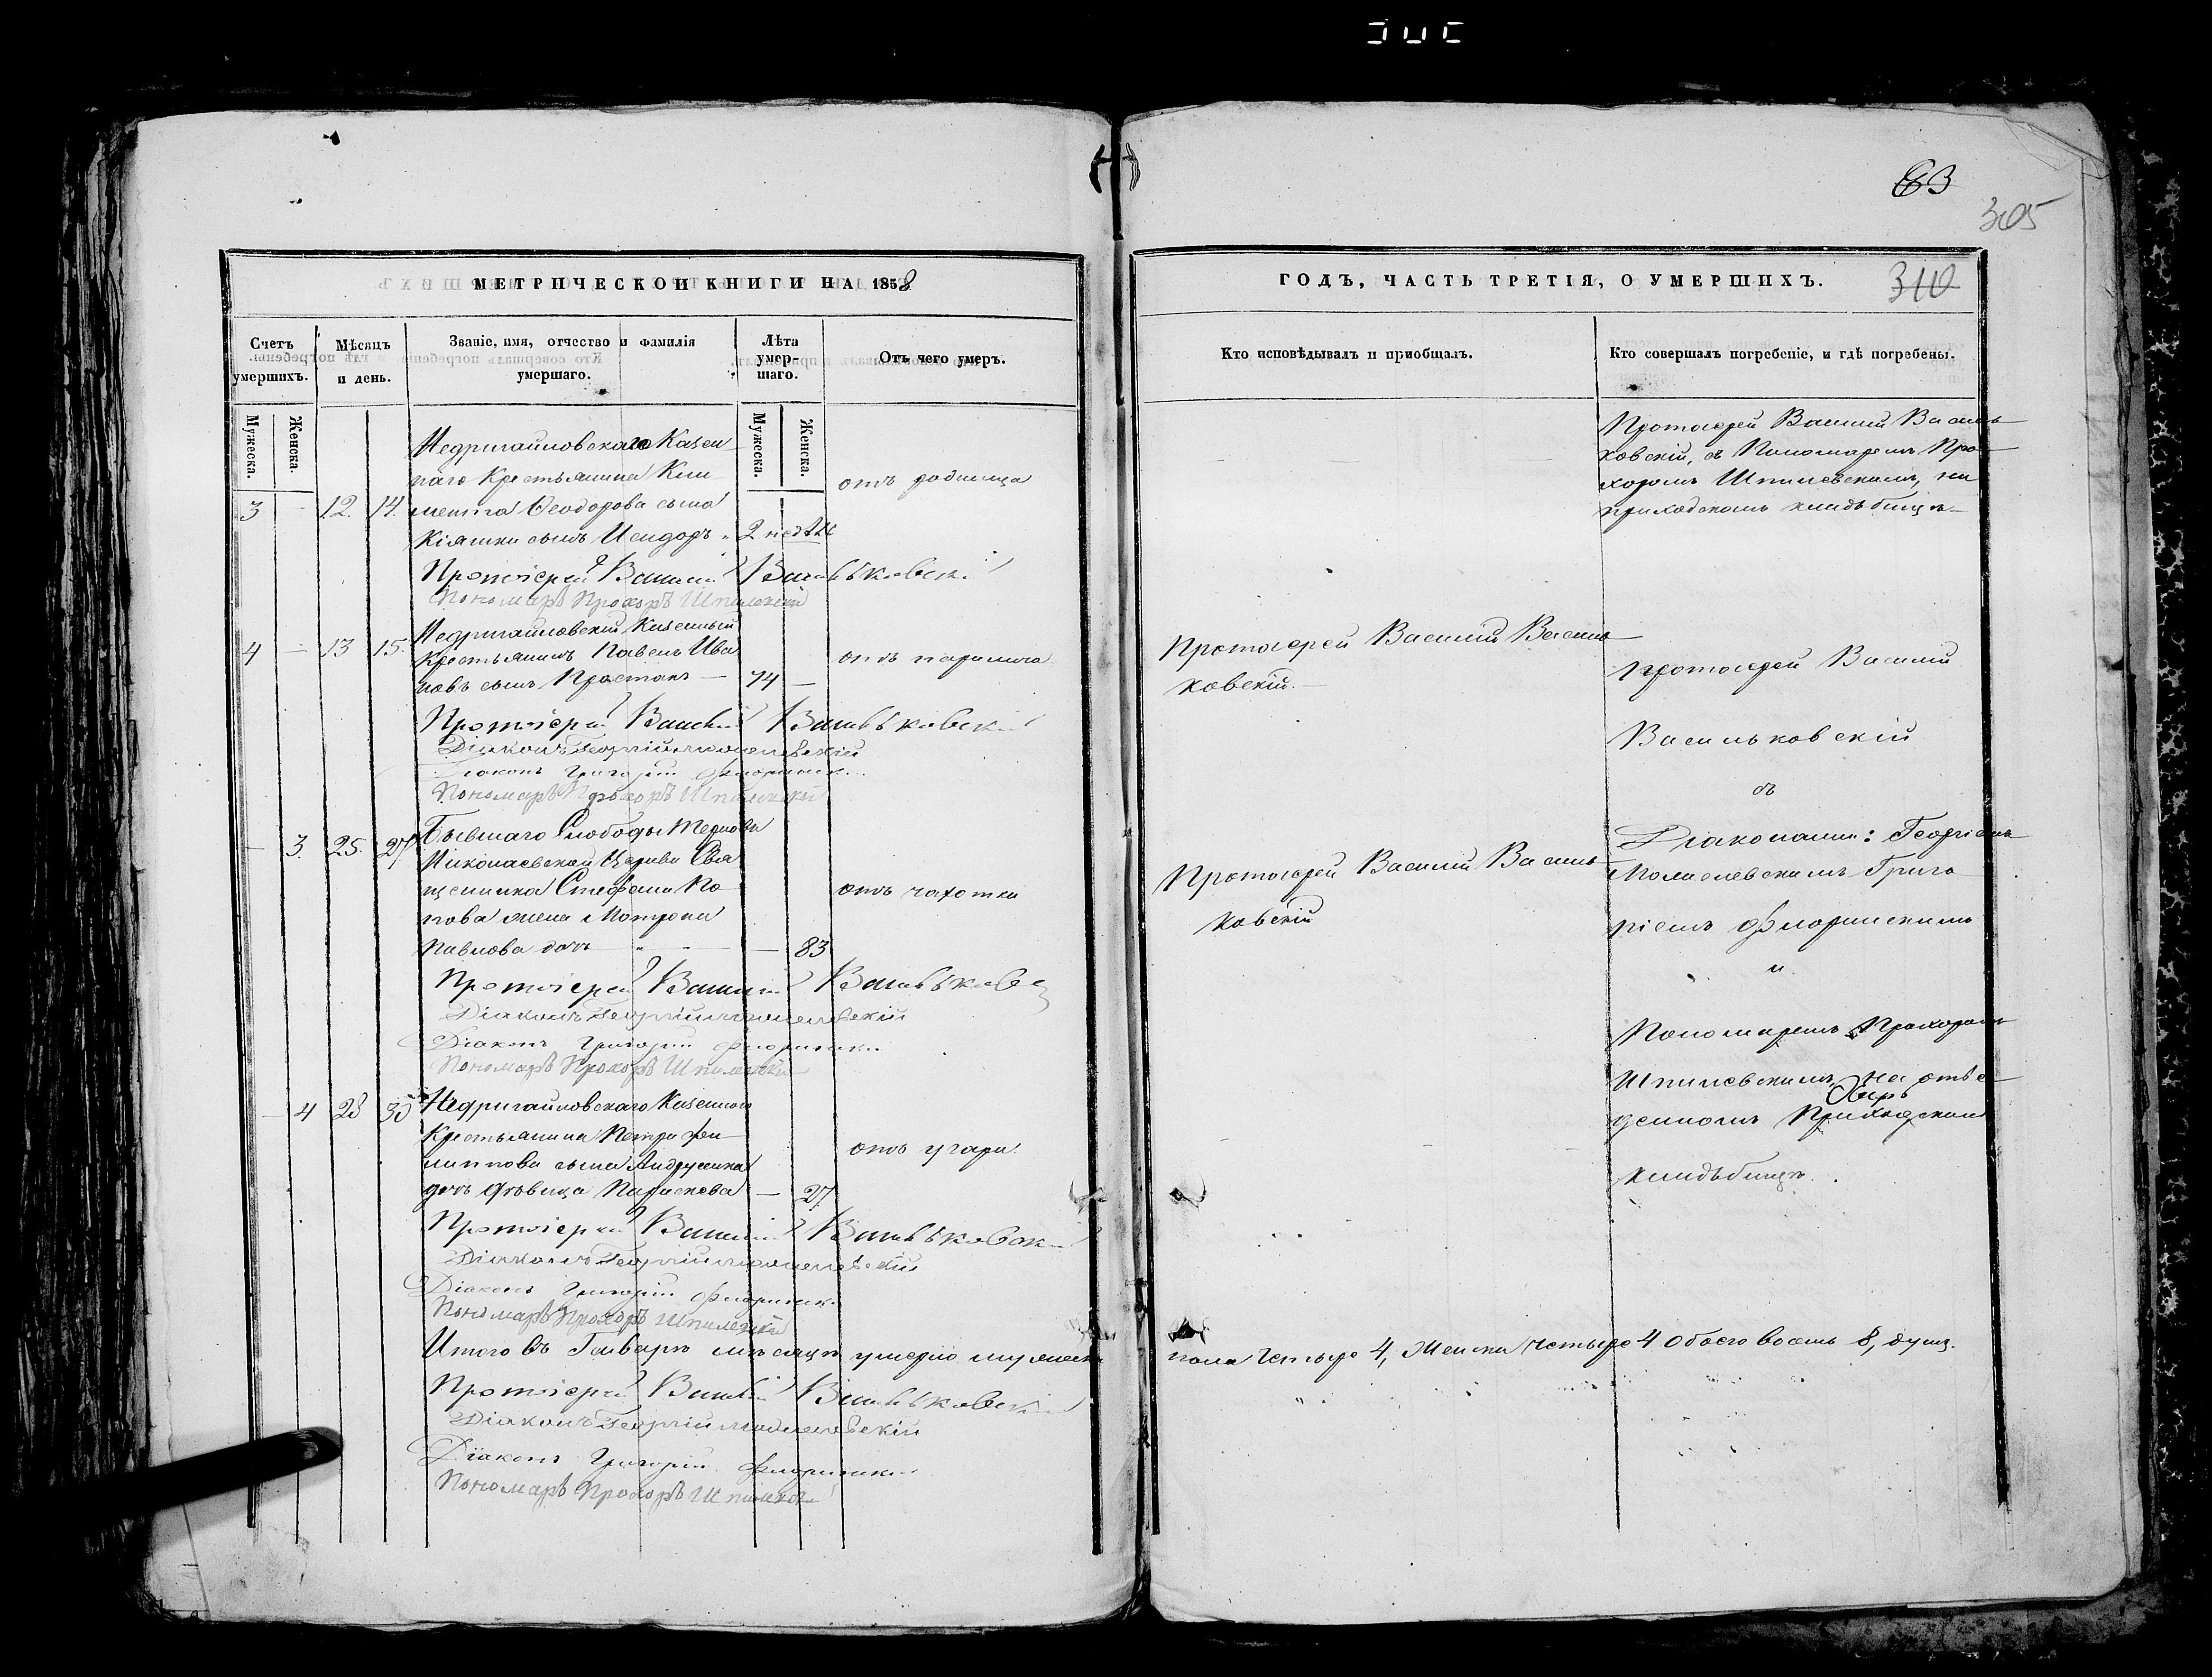 63
305
МЕТРИЧЕСКОЙ КНИГИ НА 1858
Счетъ умершихъ.
Мѣсяцъ и день.
Званіе, имя, отчество и фамилія умершаго.
Лѣта умершаго.
Отъ чего умеръ.
Мужеска.
Женска.
Мужеска.
Женска.
Недригайловскаго Казен
наго Крестьянина Кли
3 - 12. 14. мента Ѳеодорова сына
Кіяшки сынъ Исидоръ 2 нед.
отъ родимца
Протоіерей Василій Васильковскій
Пономарь Прохоръ Шпилевскій
Недригайловскій Казенный
4 - 13 15. Крестьянинъ Павелъ Ива
новъ сынъ Простакъ - 74 -
отъ паралича
Протоіерей Василій Васильковскій
Діаконъ Георгій
Діаконъ Григорій Флоринскій
Пономарь Прохоръ Шпилевскій
- 3. 25. 27. Бывшаго Слободы Терновъ
Николаевской Церкви Свя
щенника Стефана По
пова жена Матрона
Павлова дочь - 83
отъ чахотки
Протоіерей Василій Васильковскій
Діаконъ Георгій
Діаконъ Григорій Флоринскій
Пономарь Прохоръ Шпилевскій
- 4 28 30 Недригайловскаго Казеннаго
Крестьянина Петра Фи
липпова сына Андрущенка
дочь дѣвица Параскева - 27
отъ угара
Протоіерей Василій Васильковскій
Діаконъ Георгій
Діаконъ Григорій Флоринскій
Пономарь Прохоръ Шпилевскій
Итого въ Генварѣ мѣсяцѣ умерло мужеска
Протоіерей Василій Васильковскій
Діаконъ Георгій
Діаконъ Григорій Флоринскій
Пономарь Прохоръ Шпилевскій
ГОДЪ, ЧАСТЬ ТРЕТІЯ, О УМЕРШИХЪ.
310
Кто исповѣдывалъ и приобщалъ.
Кто совершалъ погребеніе, и гдѣ погребены.
Протоіерей Василій Василь
ковскій, съ Пономаремъ Про
хоромъ Шпилевскимъ, на
приходскомъ кладбищѣ
Протоіерей Василій Василь
ковскій.
Протоіерей Василій
Васильковскій
съ
Діаконами: Георгіемъ
Григо
ріемъ Флоринскимъ
и
Пономаремъ Прохоромъ
Шпилевскимъ, на отве
денномъ Приходскомъ
кладбищѣ.
Протоіерей Василій Василь
ковскій
пола четыре 4, Женска четыре 4 обоего восемь 8, душъ.